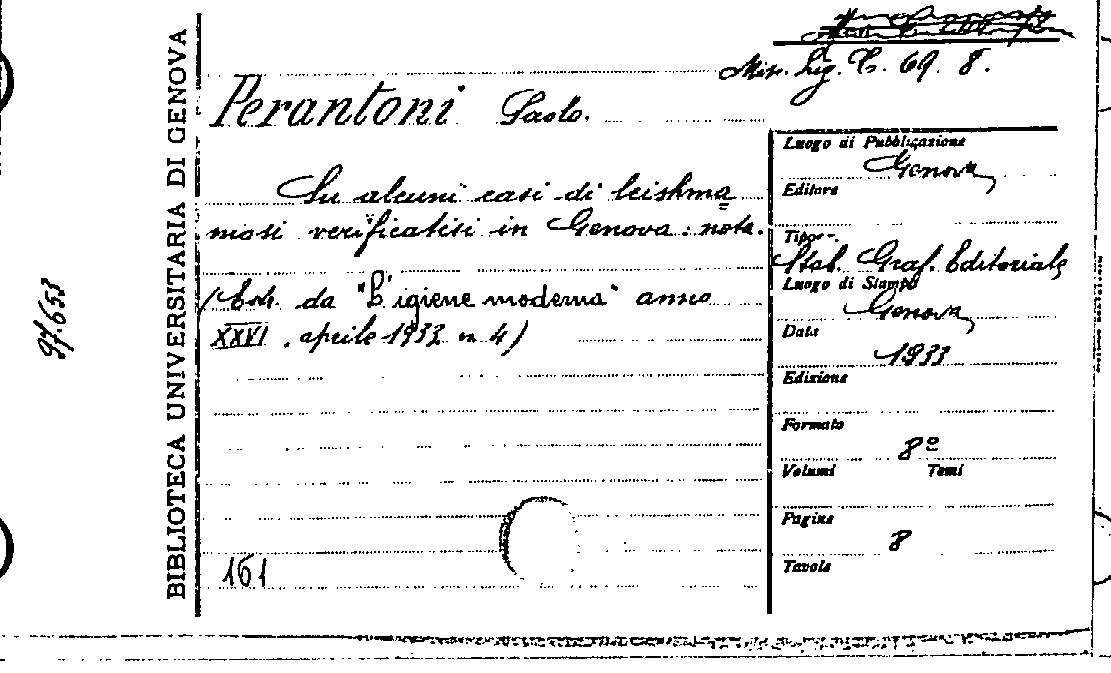 Misc. Lig. C. 69. 8.
BIBLIOTECA UNIVERSITARIA DI GENOVA
97.653
Perantoni Paolo.
Su alcuni casi di leishma=
niosi verificatisi in Genova: nota.
(Estr. da "L'igiene moderna" anno
XXVI. aprile 1933 n 4)
161
Luogo di Pubblicazione
Genova
Editore
Tipogr.
Stab. Graf. Editoriale
Luogo di Stampa
Genova
Data
1933
Edizione
Formato
8º
Volumi Tomi
Pagine
8
Tavole